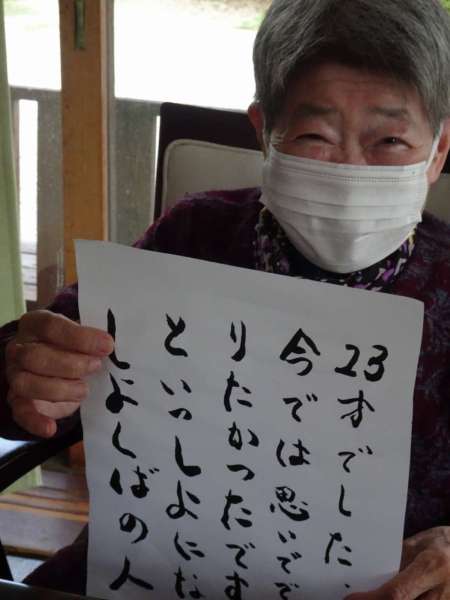 しよくばの人
といっしよにな
りたかったです
今では思いでで
23才でした、